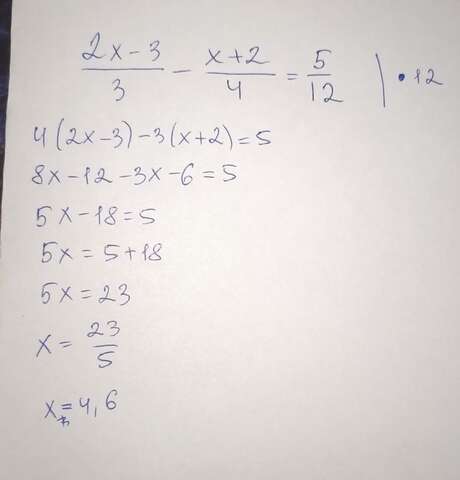 (2x-3)/3 - (x+2)/4 = 5/12 | • 12
4(2x-3)-3(x+2)=5
8x-12-3x-6=5
5x-18=5
5x=5+18
5x=23
x=23/5
x=4,6